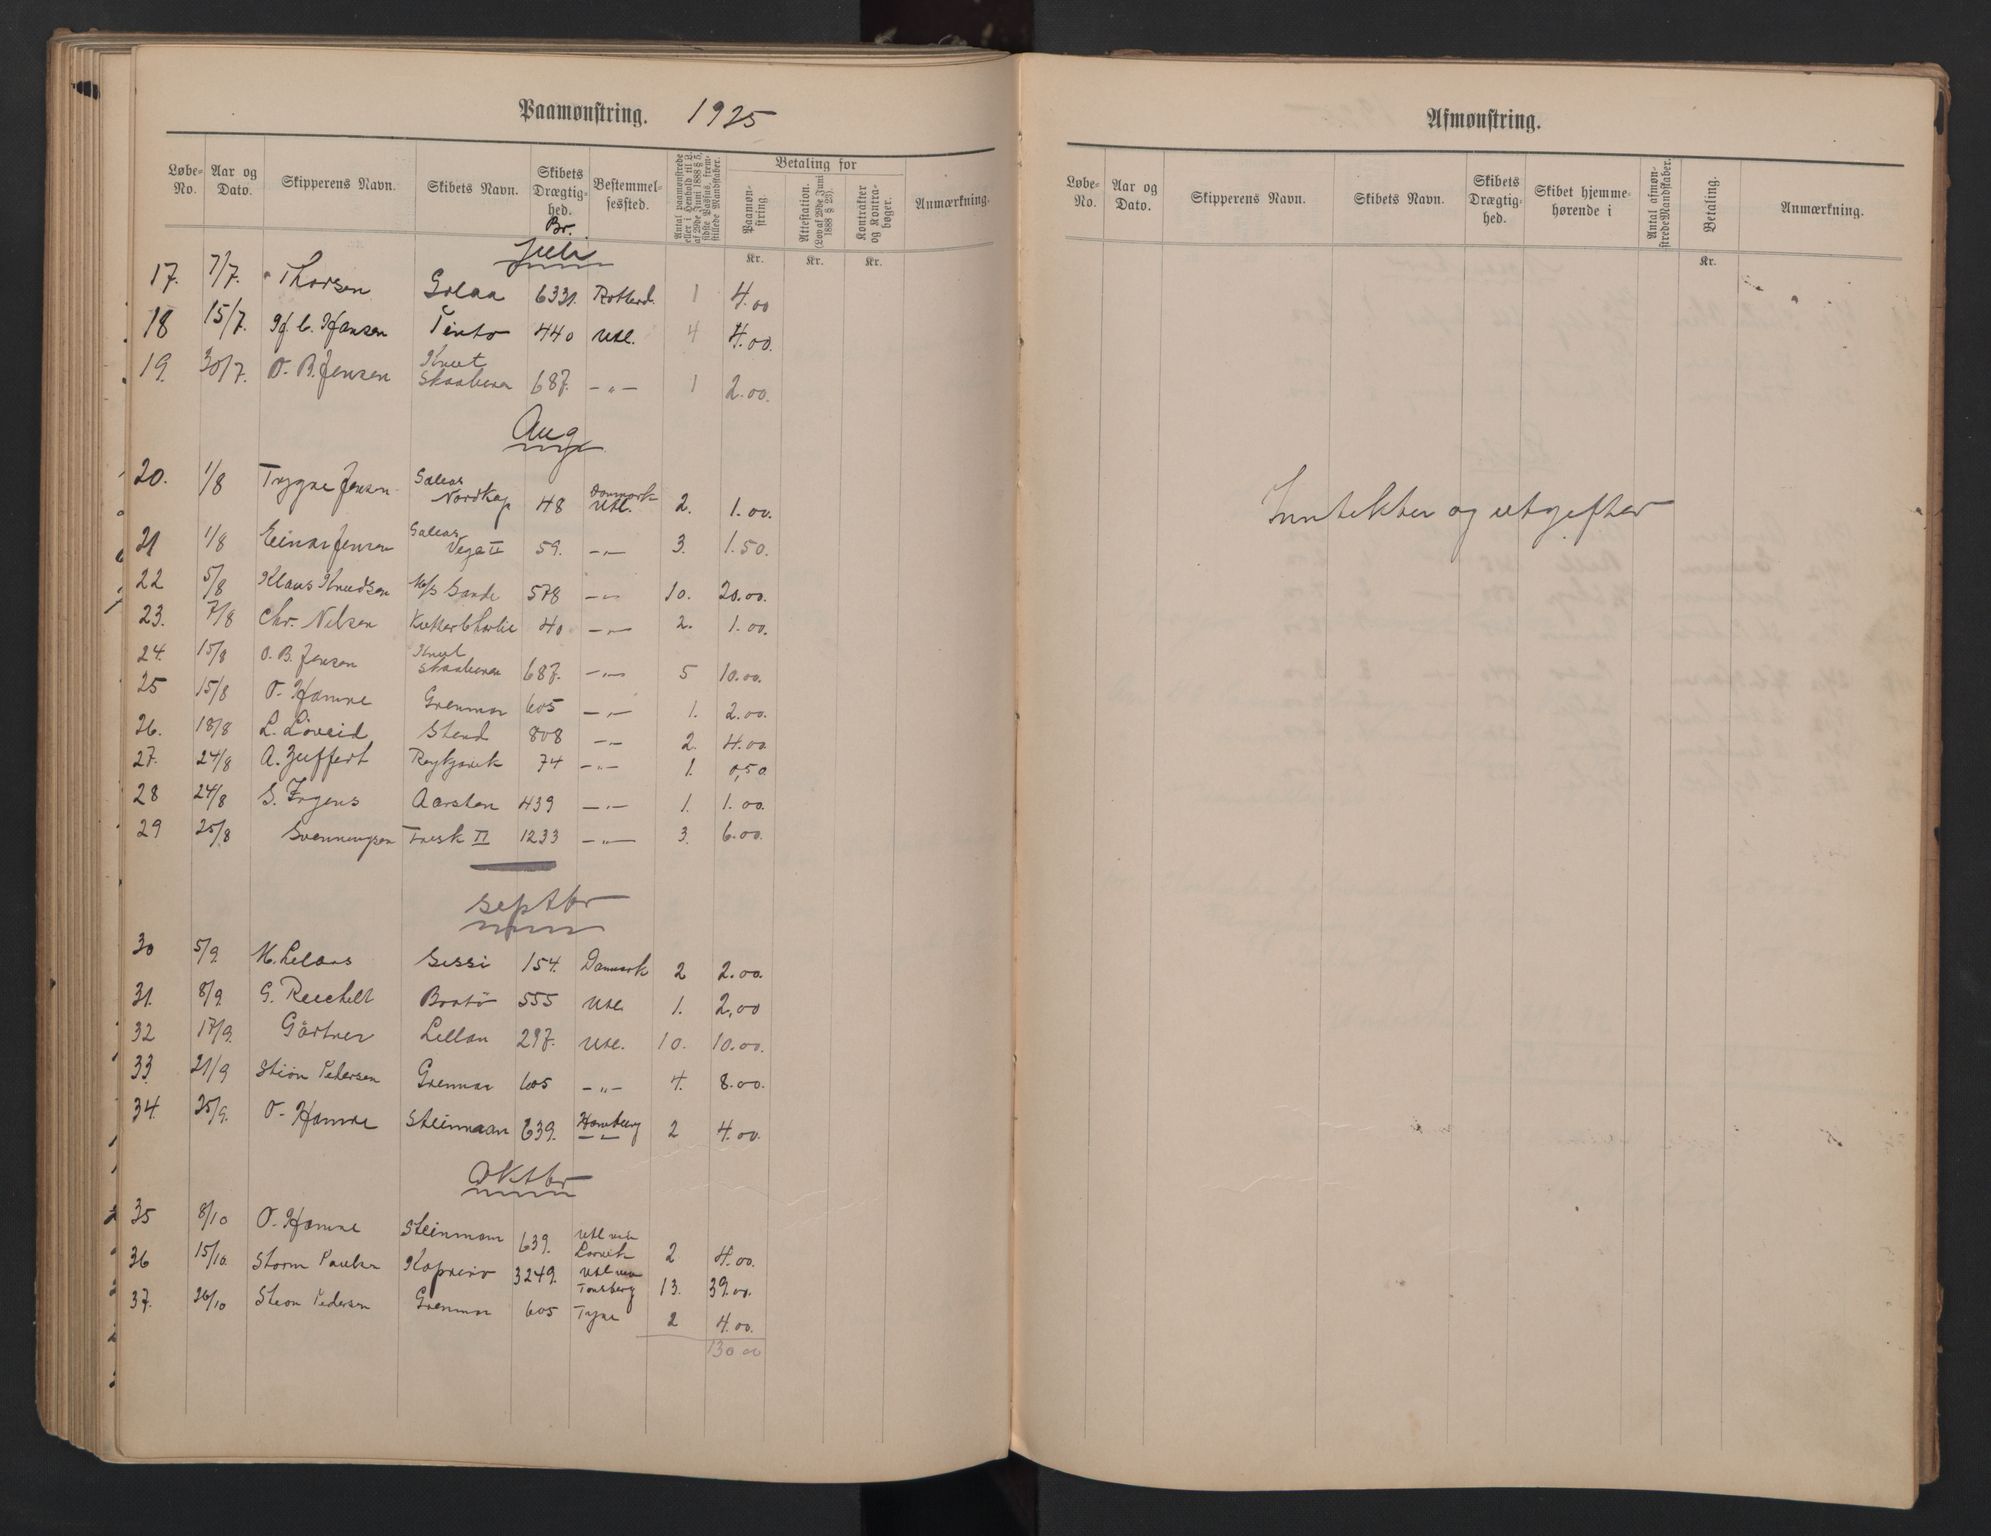 Paamønstring. 1925
Løbe-No. Aar og Dato. Skipperens Navn. Skibets Navn. Skibets Drægtighed. Br. Bestemmelsessted. Antal paamønstrede eller i Henhold til L. af 29de Juni 1888 § 5, sidste Passus, fremstillede Mandskaber. Betaling for Paamønstring Attestation. (Lov af 29de Juni 1888 § 23). Kontrakter og Kontrabøger. Anmærkning.
Kr. Kr. Kr.
Juli
17. 7/7. Thorsen Golaa 6331. Rotterd. 1 4.00
18 15/7. Hf. C. Hansen Pinto 440 Utl. 4 4.00.
19. 30/7. O. B. Jensen Knut Skaaluren 687. — „ — 1 2.00.
Aug
20. 1/8 Trygve Jensen Galeas Nordkap 48 Danmark Utl. 2. 1.00.
21 1/8 Einar Jensen Galeas Vega II 59. — „ — 3. 1.50.
22 5/8 Klaus Knudsen M/s Sande 578 — „ — 10. 20.00.
23. 7/8 Chr. Nilsen Kutter Charlie 40 — „ — 2. 1.00.
24. 15/8 O. B. Jensen Knut Skaaluren 687. — „ — 5 10.00.
25 15/8 O. Hamre Grenmar 605 — „ — 1. 2.00.
26. 18/8 L. Löveid Stend 808 — „ — 2. 4.00.
27. 24/8 A. Zuffert Reykjavik 74 — „ — 1. 0,50.
28 24/8 S. Irgens Aarsten 439 — „ — 1. 1.00.
29 25/8 Svenningsen Fresk II 1233 — „ — 3. 6.00.
Septbr
30 5/9. M. Lelaus Sissi 154. Danmark 2 2.00.
31. 8/9. G. Reichelt Bratö 555 Utl. 1. 2,00
32 17/9. Gärtner Lillan 297. Utl. 10. 10.00.
33. 21/9 Stiön Pedersen Grenmar 605 — „ — 4. 8.00.
34. 25/9. O. Hamre Steinmaan 639. Hamburg 2 4.00.
Oktbr
35 8/10 O. Hamre Steinmaan 639. Utl via Larvik 2 4.00.
36 15/10. Storm Paulsen Kaprino 3249. Utl via Tønsberg 13. 39.00.
37. 26/10 Stion Pedersen Grenmar 605 Tyne 2 4.00.
130.00
Afmønstring.
Løbe-No. Aar og Dato. Skipperens Navn. Skibets Navn. Skibets Drægtighed. Skibet hjemmehørende i Antal afmønstrede Mandskaber. Betaling. Anmærkning.
Kr.
Inntekter og utgifter